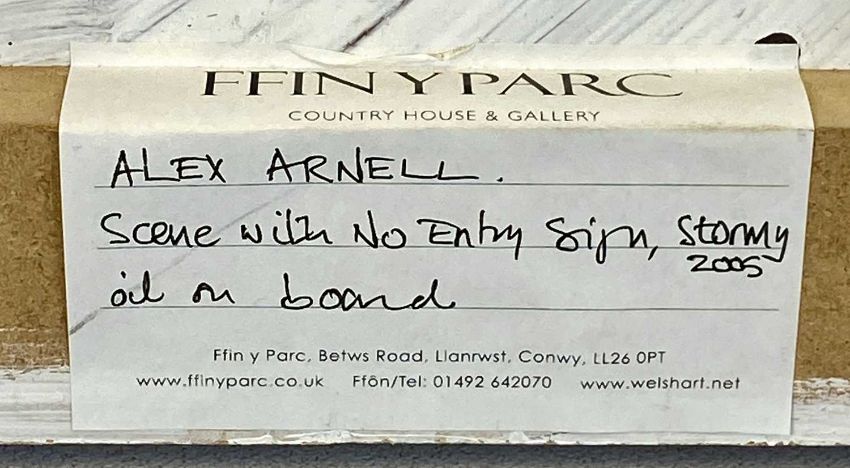 FFIN Y PARC
COUNTRY HOUSE & GALLERY
ALEX ARNELL.
Scene with No Entry Sign, Stormy
2005
oil on board
Ffin y Parc, Betws Road, Llanrwst, Conwy, LL26 0PT
www.ffinyparc.co.uk Ffôn/Tel: 01492 642070 www.welshart.net